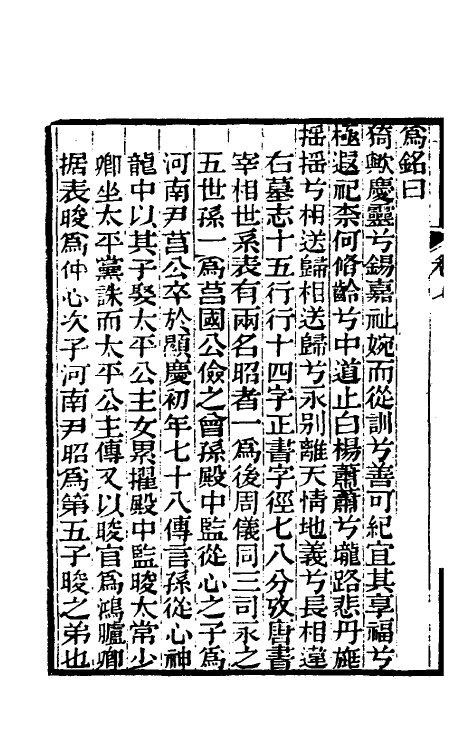 為銘曰
猗歟慶靈兮錫嘉祉婉而從訓兮善可紀宜其享福兮
極遐祀柰何脩齡兮中道止白楊蕭蕭兮壠路悲丹旐
搖搖兮相送歸相送歸兮永別離天情地義兮長相違
右墓志十五行行十四字正書字徑七八分攷唐書
宰相世系表有兩名昭者一為後周儀同三司永之
五世孫一為莒國公儉之曾孫殿中監從心之子為
河南尹莒公卒於顯慶初年七十八傳言孫從心神
龍中以其子娶太平公主女累擢殿中監晙太常少
卿坐太平黨誅而太平公主傳又以晙官為鴻臚卿
据表晙為仲心次子河南尹昭為第五子晙之弟也
卷七